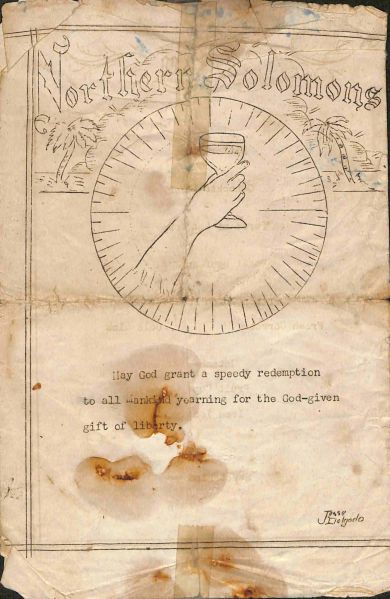 Northern Solomons
May God grant a speedy redemption
to all mankind yearning for the God-given
gift of liberty.
Jesse
Delgado